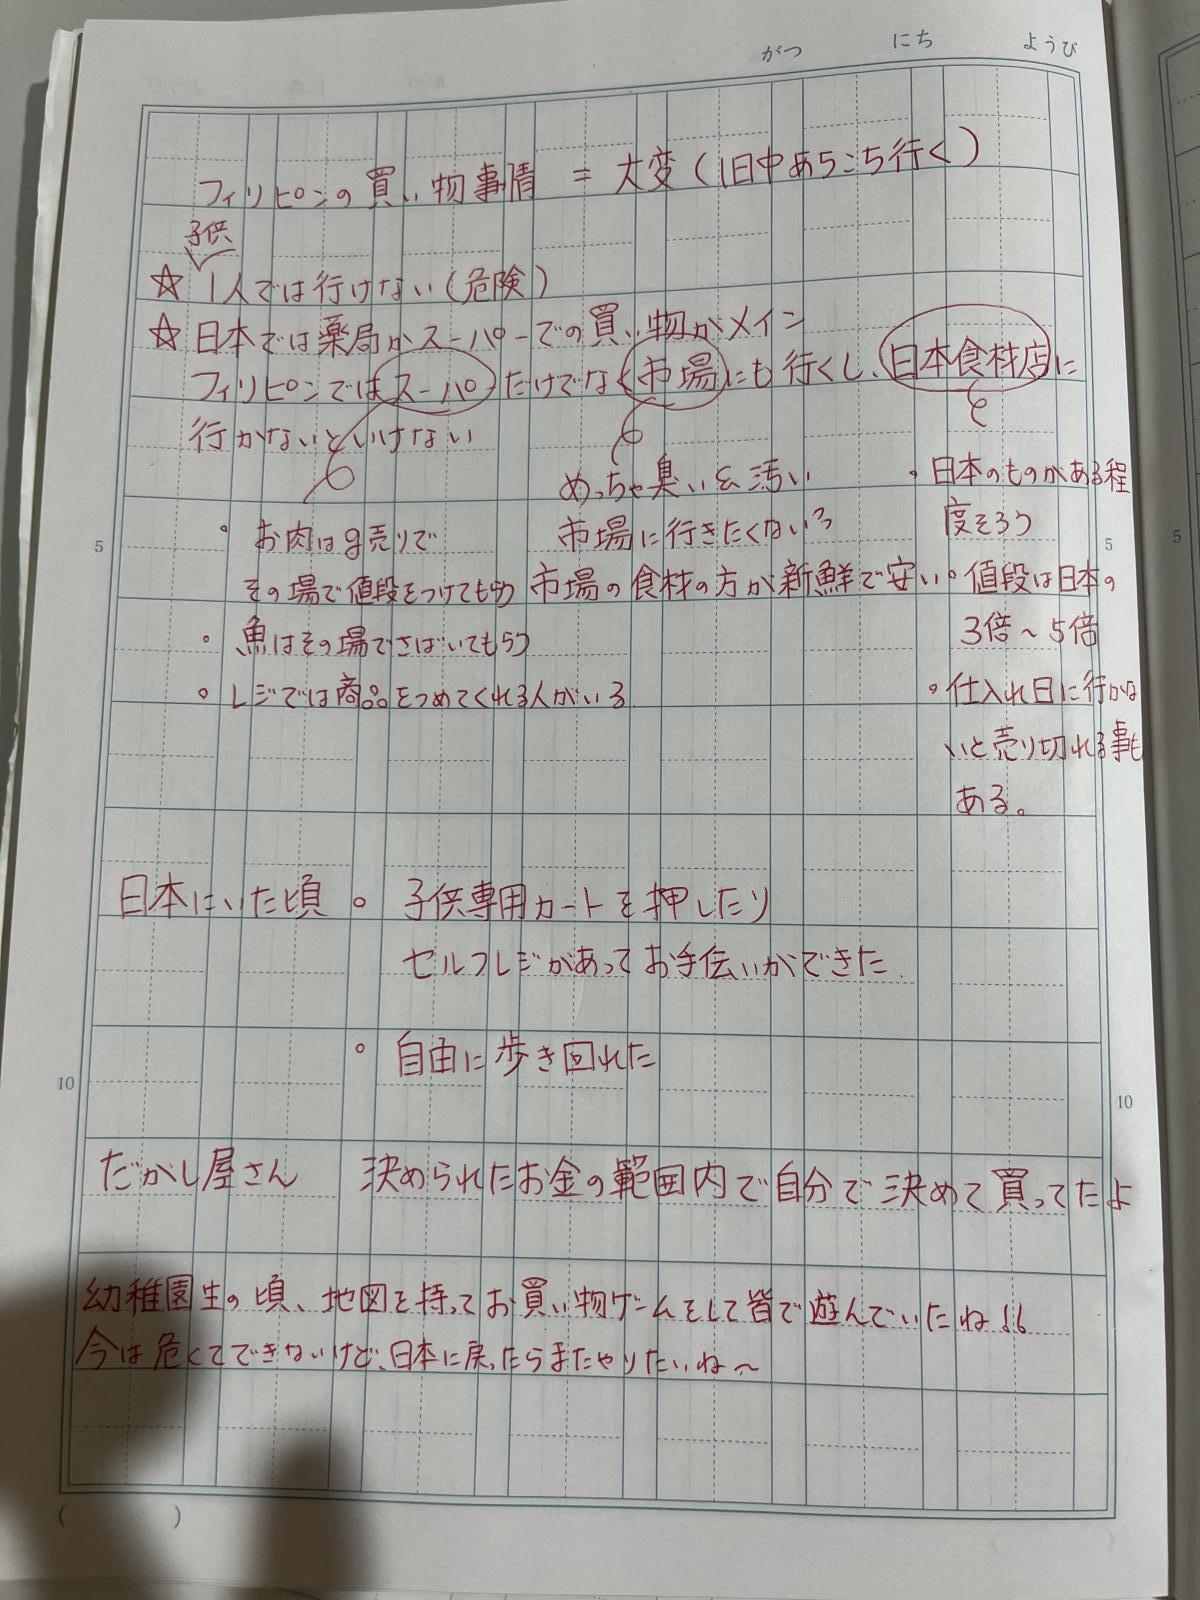 がつ にち ようび
フィリピンの買い物事情 = 大変(1日中あちこち行く)
子供
☆ 1人では行けない(危険)
☆ 日本では薬局かスーパーでの買い物がメイン
フィリピンではスーパーだけでなく市場にも行くし、日本食材店に
行かないといけない
・お肉はg売りで
その場で値段をつけてもらう
・魚はその場でさばいてもらう
・レジでは商品をつめてくれる人がいる
めっちゃ臭い&汚い
市場に行きたくない
市場の食材の方が新鮮で安い
・日本のものがある程
度そろう
・値段は日本の
3倍〜5倍
・仕入れ日に行かな
いと売り切れる事も
ある。
5
5
5
日本にいた頃 ・子供専用カートを押したり
セルフレジがあってお手伝いができた
・自由に歩き回れた
10
10
だがし屋さん 決められたお金の範囲内で自分で決めて買ってたよ
幼稚園生の頃、地図を持ってお買い物ゲームをして皆で遊んでいたね!!
今は危くてできないけど、日本に戻ったらまたやりたいね〜
( )